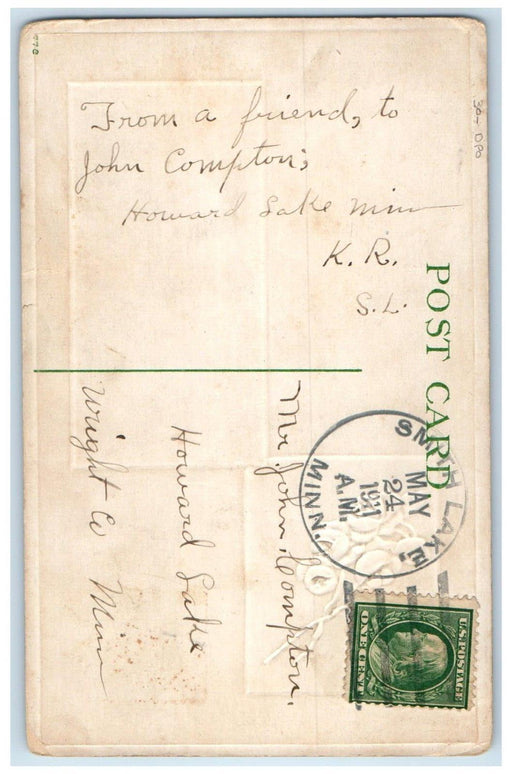 From a friend, to
John Compton's
Howard Lake Minn
K. R.
S.L.
POST CARD
Mr. John Compton.
Howard Lake
Wright Co Minn
SMITH LAKE,
MAY
24
A.M.
1911
MINN.
U.S. POSTAGE
ONE CENT
30- DPO